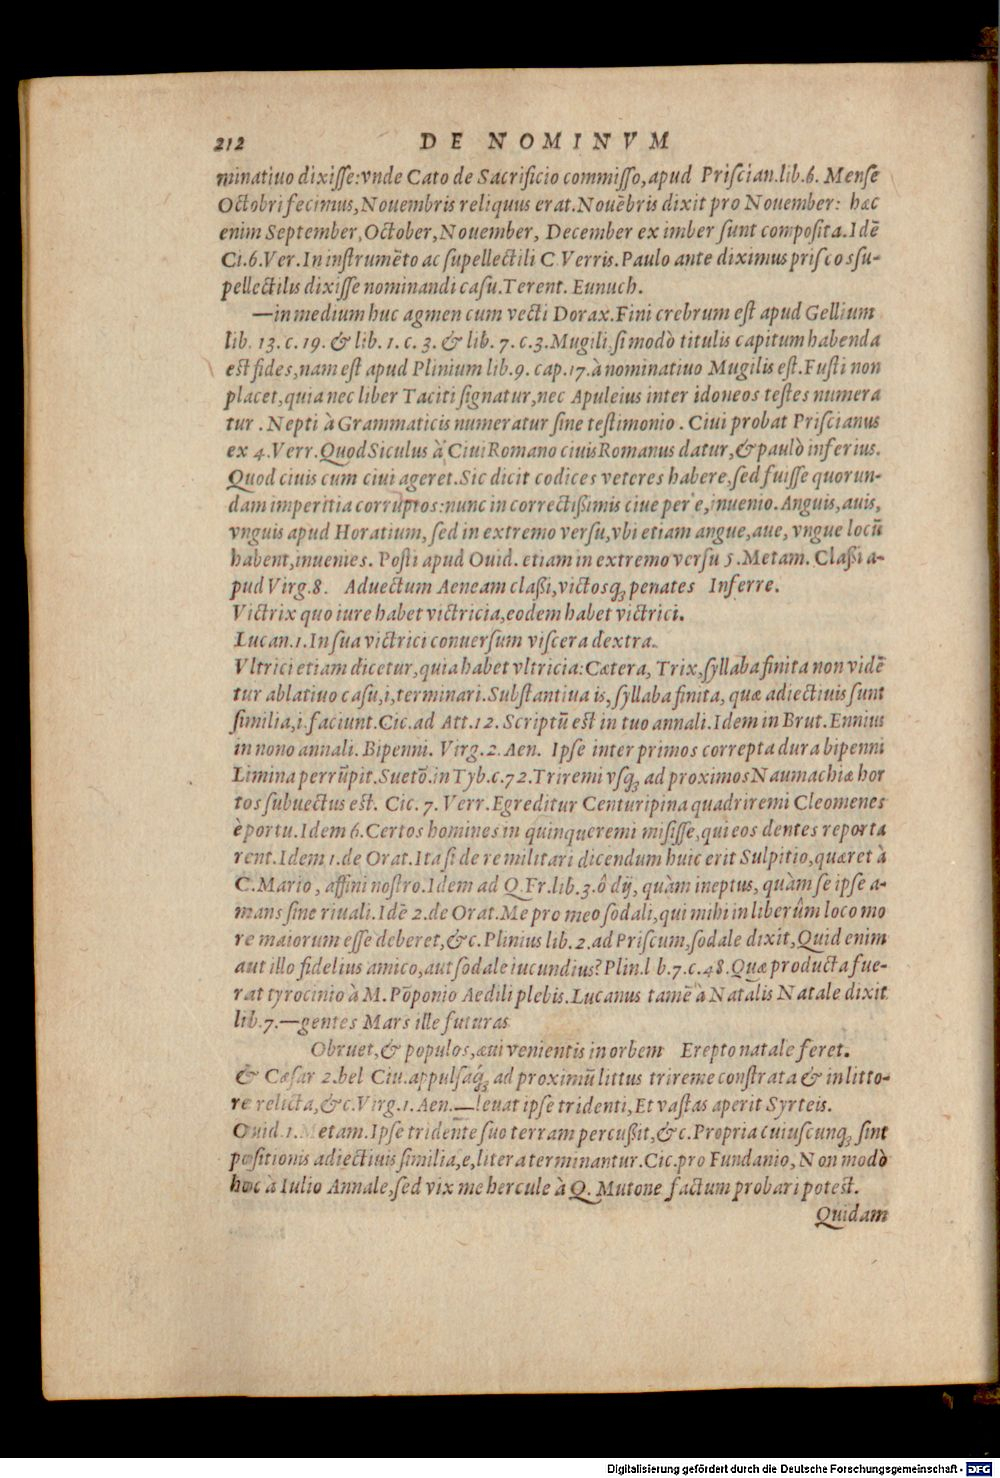 212 DE NOMINVM
minatiuo dixiſſe:vnde Cato de Sacrificio commiſſo,apud Priſcian.lib.6. Menſe
Octobri fecimus,Nouembris reliquus erat.Nouēbris dixit pro Nouember: hæc
enim September,October,Nouember, December ex imber ſunt compoſita.Idē
Ci.6.Ver.In inſtrumēto ac ſupellectili C Verris.Paulo ante diximus priſcos ſu-
pellectilis dixiſſe nominandi caſu.Terent. Eunuch.
—in medium huc agmen cum vecti Dorax.Fini crebrum eſt apud Gellium
lib. 13. c. 19. & lib. 1. c. 3. & lib. 7. c.3.Mugili,ſi modò titulis capitum habenda
eſt fides,nam eſt apud Plinium lib.9. cap.17.à nominatiuo Mugilis eſt.Fuſti non
placet,quia nec liber Taciti ſignatur,nec Apuleius inter idoneos teſtes numera
tur . Nepti à Grammaticis numeratur ſine teſtimonio . Ciui probat Priſcianus
ex 4.Verr.Quod Siculus à Ciui Romano ciuis Romanus datur,& paulò inferius.
Quod ciuis cum ciui ageret.Sic dicit codices veteres habere,ſed fuiſſe quorun-
dam imperitia corruptos:nunc in correctißimis ciue per e,inuenio.Anguis,auis,
vnguis apud Horatium, ſed in extremo verſu,vbi etiam angue,aue, vngue locū
habent,inuenies. Poſti apud Ouid. etiam in extremo verſu 5.Metam. Claßi a-
pud Virg.8. Aduectum Aeneam claßi,victosq́; penates Inferre.
Victrix quo iure habet victricia,eodem habet victrici.
Lucan.1.In ſua victrici conuerſum viſcera dextra.
Vltrici etiam dicetur,quia habet vltricia:Cætera, Trix,ſyllaba finita non vidē
tur ablatiuo caſu,i,terminari.Subſtantiua is,ſyllaba finita, quæ adiectiuis ſunt
ſimilia,i.faciunt.Cic.ad Att.12. Scriptū eſt in tuo annali.Idem in Brut.Ennius
in nono annali. Bipenni. Virg.2. Aen. Ipſe inter primos correpta dura bipenni
Limina perrūpit.Suetō.in Tyb.c.72.Triremi vſq; ad proximos Naumachiæ hor
tos ſubuectus eſt. Cic. 7. Verr.Egreditur Centuripina quadriremi Cleomenes
è portu.Idem 6.Certos homines in quinqueremi miſiſſe,qui eos dentes reporta
rent.Idem 1.de Orat.Ita ſi de re militari dicendum huic erit Sulpitio,quæret à
C.Mario , affini noſtro.Idem ad Q.Fr.lib.3.ô dij, quàm ineptus, quàm ſe ipſe a-
mans ſine riuali.Idē 2.de Orat.Me pro meo ſodali,qui mihi in liberûm loco mo
re maiorum eſſe deberet,&c.Plinius lib.2.ad Priſcum,ſodale dixit,Quid enim
aut illo fidelius amico,aut ſodale iucundius?Plin.l b.7.c.48.Quæ producta fue-
rat tyrocinio à M.Pōponio Aedili plebis.Lucanus tamē à Natalis Natale dixit
lib.7.—gentes Mars ille futuras
Obruet,& populos,æui venientis in orbem Erepto natale feret.
& Cæſar 2.bel Ciu.appulſaq́; ad proximū littus trireme conſtrata & in litto-
re relicta,&c.Virg.1.Aen.—leuat ipſe tridenti,Et vaſtas aperit Syrteis.
Ouid.1.Metam.Ipſe tridente ſuo terram percußit,&c.Propria cuiuſcunq; ſint
poſitionis adiectiuis ſimilia,e,litera terminantur.Cic.pro Fundanio, Non modò
hoc à Iulio Annale,ſed vix me hercule à Q. Mutone factum probari poteſt.
Quidam
Digitalisierung gefördert durch die Deutsche Forschungsgemeinschaft - DFG